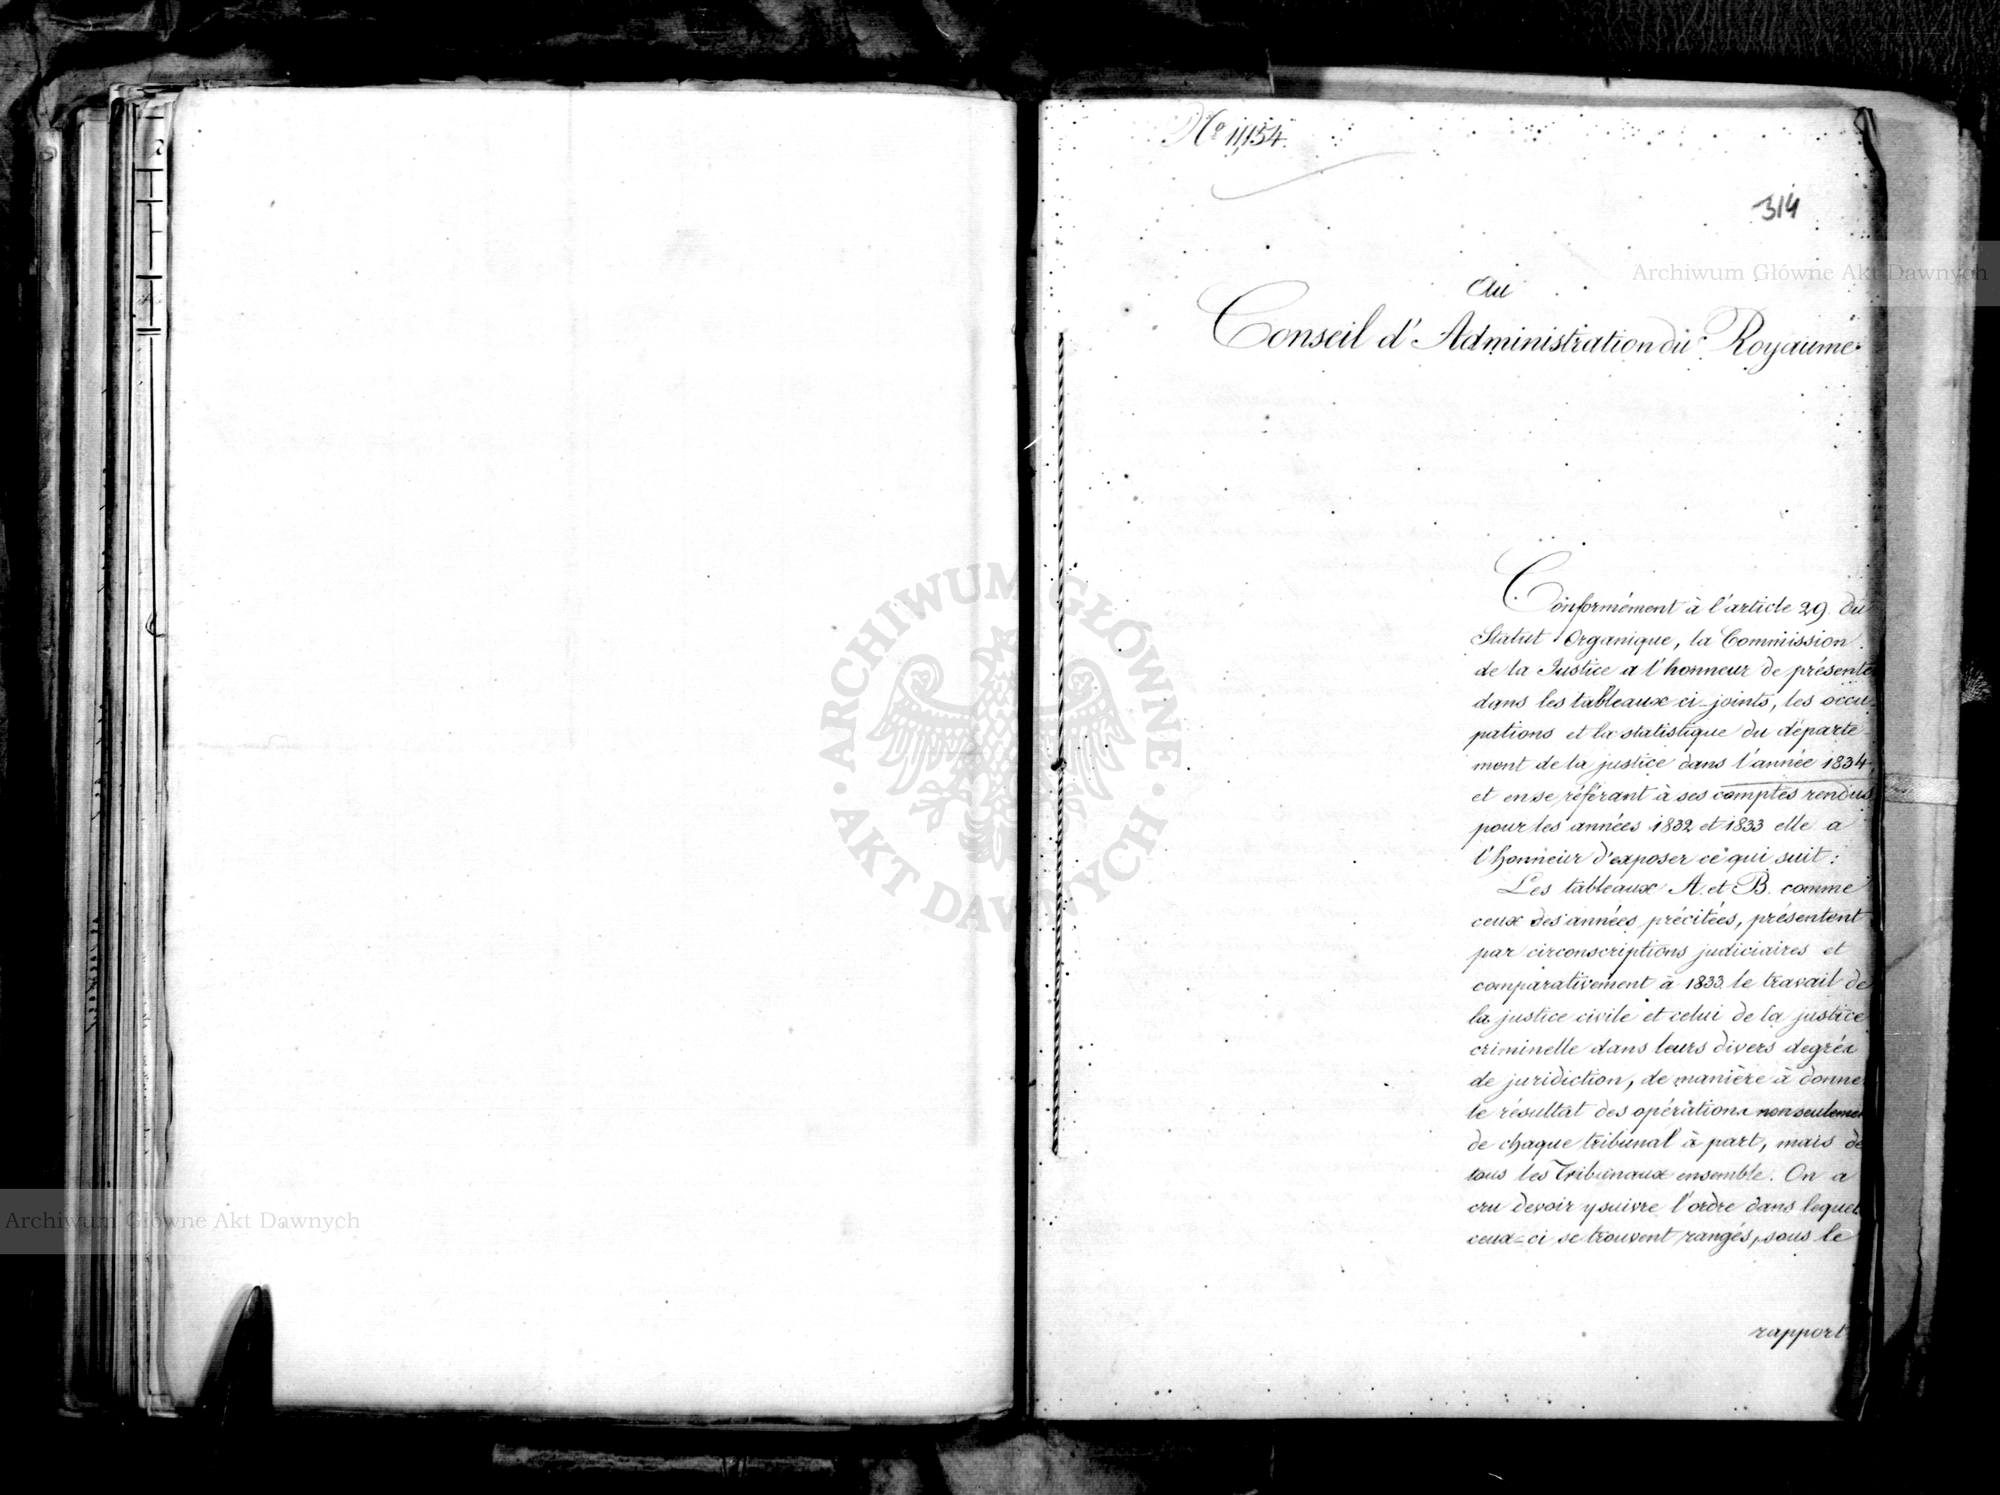 No 11,154.
314
Au
Conseil d'Administration du Royaume
Conformément à l'article 29. du
Statut Organique, la Commission
de la Justice a l'honneur de présente
dans les tableaux ci-joints, les occu-
pations et la statistique du départe-
ment de la justice dans l'année 1834,
et en se référant à ses comptes rendus
pour les années 1832 et 1833 elle a
l'honneur d'exposer ce qui suit:
Les tableaux A. et B. comme
ceux des années précitées, présentent
par circonscriptions judiciaires et
comparativement à 1833 le travail de
la justice civile et celui de la justice
criminelle dans leurs divers degrés
de juridiction, de manière à donne
le résultat des opérations non seulemen
de chaque tribunal à part, mais de
tous les Tribunaux ensemble. On a
cru devoir y suivre l'ordre dans lequel
ceux-ci se trouvent rangés, sous le
rapport
Archiwum Główne Akt Dawnych
Archiwum Główne Akt Dawnych
ARCHIWUM GŁÓWNE
AKT DAWNYCH